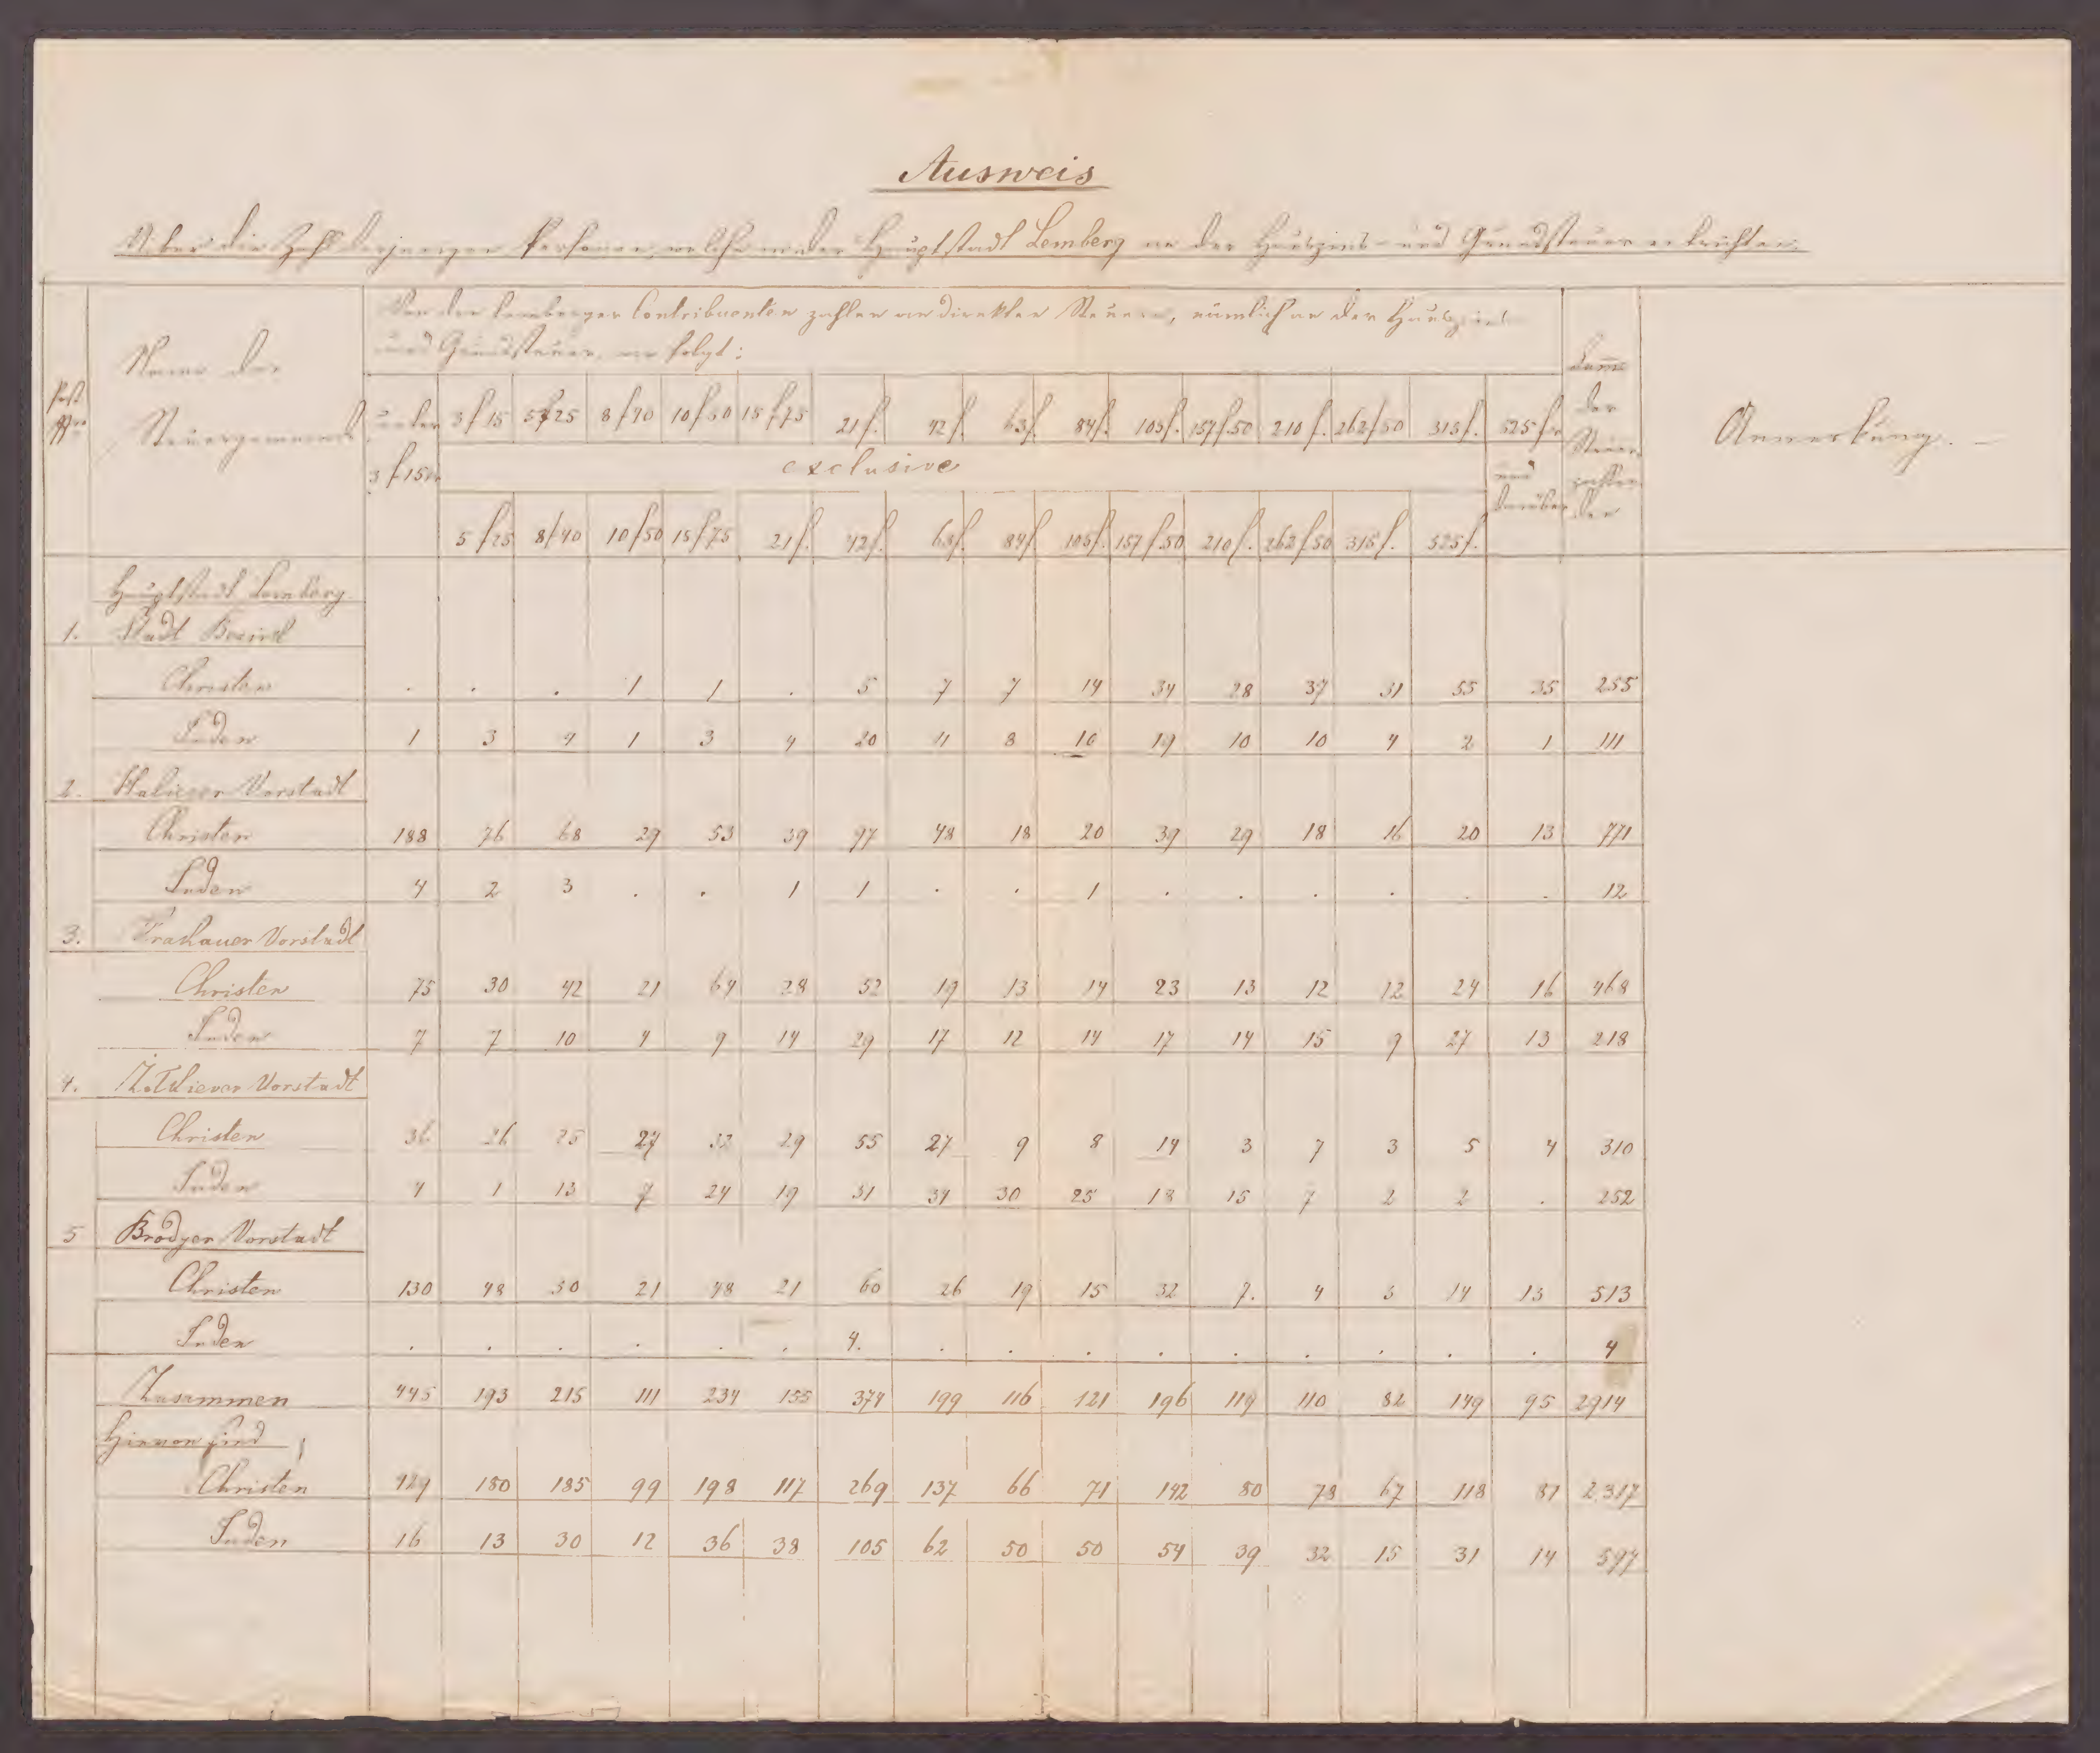 Ausweis
Über die Zahl derjenigen Personen, welche in der Hauptstadt Lemberg an der Hauszins- und Grundsteuer entrichten.
Post Nro
Name der Steuergemeinde
Von den Lemberger Contribuenten zahlen an direkten Steuern, nämlich an der Hauszins
und Grundsteuer, wie folgt:
Summe der Steuerzahlenden
Anmerkung. —
unter 3 f 15 kr 3 f 15 5 f 25 8 f 40 10 f 50 15 f 75 21 f. 42 f. 63 f. 84 f. 105 f. 157 f. 50 210 f. 262 f 50 315 f. 525 f. und darüber
exclusive
5 f 25 8 f 40 10 f 50 15 f 75 21 f. 42 f. 63 f. 84 f. 105 f. 157 f. 50 210 f. 262 f 50 315 f. 525 f.
Hauptstadt Lemberg
1. Stadt Bezirk
Christen . . . 1 1 . 5 7 7 14 34 28 37 31 55 35 255
Juden 1 3 4 1 3 4 20 11 8 10 19 10 10 4 2 1 111
2. Haliczer Vorstadt
Christen 188 76 68 29 53 39 97 48 18 20 39 29 18 16 20 13 771
Juden 4 2 3 . . 1 1 . . 1 . . . . . . 12
3. Krakauer Vorstadt
Christen 75 30 42 21 64 28 52 29 13 14 23 13 12 12 24 16 468
Juden 7 7 10 4 9 14 29 17 12 14 17 14 15 9 27 13 218
4. Żołkiewer Vorstadt
Christen 36 26 25 27 32 29 55 27 9 8 14 3 7 3 5 4 310
Juden 4 1 13 7 24 19 51 34 30 25 18 15 7 2 2 . 252
5 Brodyer Vorstadt
Christen 130 48 50 21 48 21 60 26 19 15 32 7. 4 5 14 13 513
Juden . . . . . . 4. . . . . . . . . . 4
Zusammen 445 193 215 111 234 155 374 199 116 121 196 119 110 82 149 95 2914
Hievon sind
Christen 429 180 185 99 198 117 269 137 66 71 142 80 78 67 118 81 2317
Juden 16 13 30 12 36 38 105 62 50 50 54 39 32 15 31 14 597